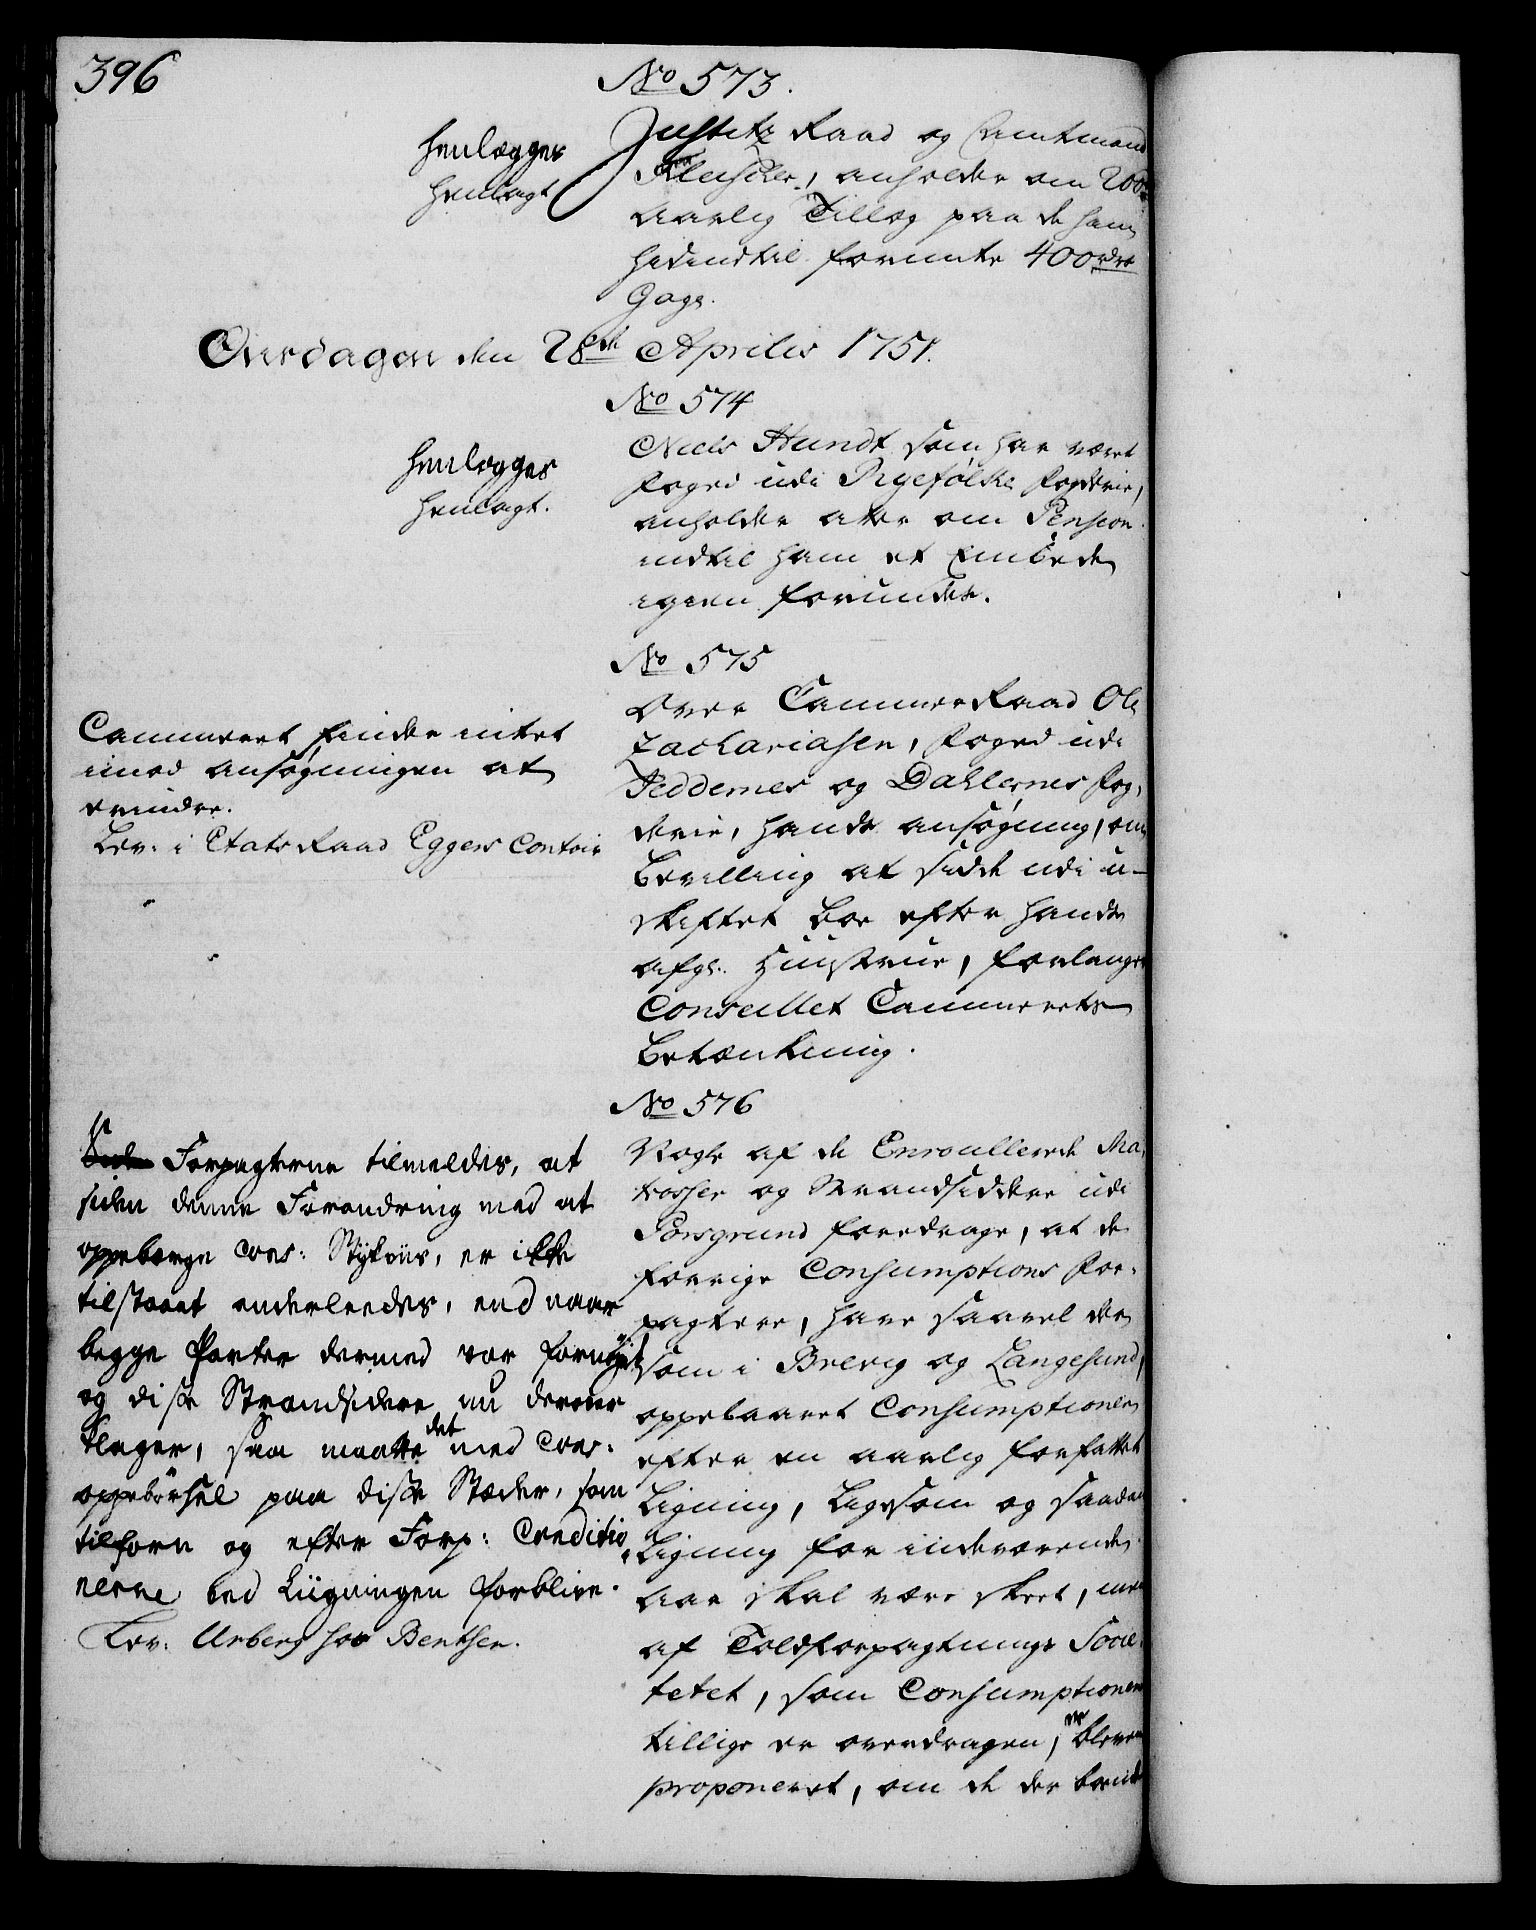 396
No 573.
henlægges
henlagt
Justitz Raad og Amtmand
Fleischer, anholder om 200 rdr
aarlig Tillæg paa de ham
hidindtil forundte 400 rdrs
Gage.
Onsdagen den 28de Aprilis 1751.
No 574
henlægges
henlagt.
Niels Hundt som har været
Foged udi Ryefølke Fogderie,
anholder atter om Pension
indtil ham et Embede
igien forundes.
No 575
Cammeret finder intet
imod ansøgningen at
erindre.
Lev: i Etats Raad Eggers Contoir
Over Cammer Raad Ole
Zachariasen, Foged udi
Jeddernes og Dahlernes Fog-
derie, hands ansøgning, om
Bevilling at sidde udi u-
skiftet Boe efter hands
afgl. Hustrue, forlanger
Conseillet Cammerets
Betænkning.
No 576
Forpagterne tilmeldes, at
siden denne Forandring med at
oppebærge Cons: Stykviis, er ikke
tilstaaet anderleedes, end naar
begge Parter dermed var fornøyet,
og disse Strandsidere nu derover
klager, saa maatte det med Cons:
oppebørsel paa disse Stæder, som
tilforn og efter Forp: Conditio-
nerne ved Liigningen forblive.
Lev: Urberg hos Benthsen.
Nogle af de Enroullerede Ma-
trosser og Strandsiddere udi
Porsgrund foredrage, at de
forrige Consumptions For-
pagtere, have saavel der
som i Brevig og Langesund,
oppebaaret Consumptionen
efter en aarlig forfattet
Ligning, ligesom og saadan
Ligning for indeværende
aar skal være skeet, men
af Toldforpagtnings Socie-
tetet, som Consumptionen
tillige er overdragen, er bleven
proponeret, om de der boende